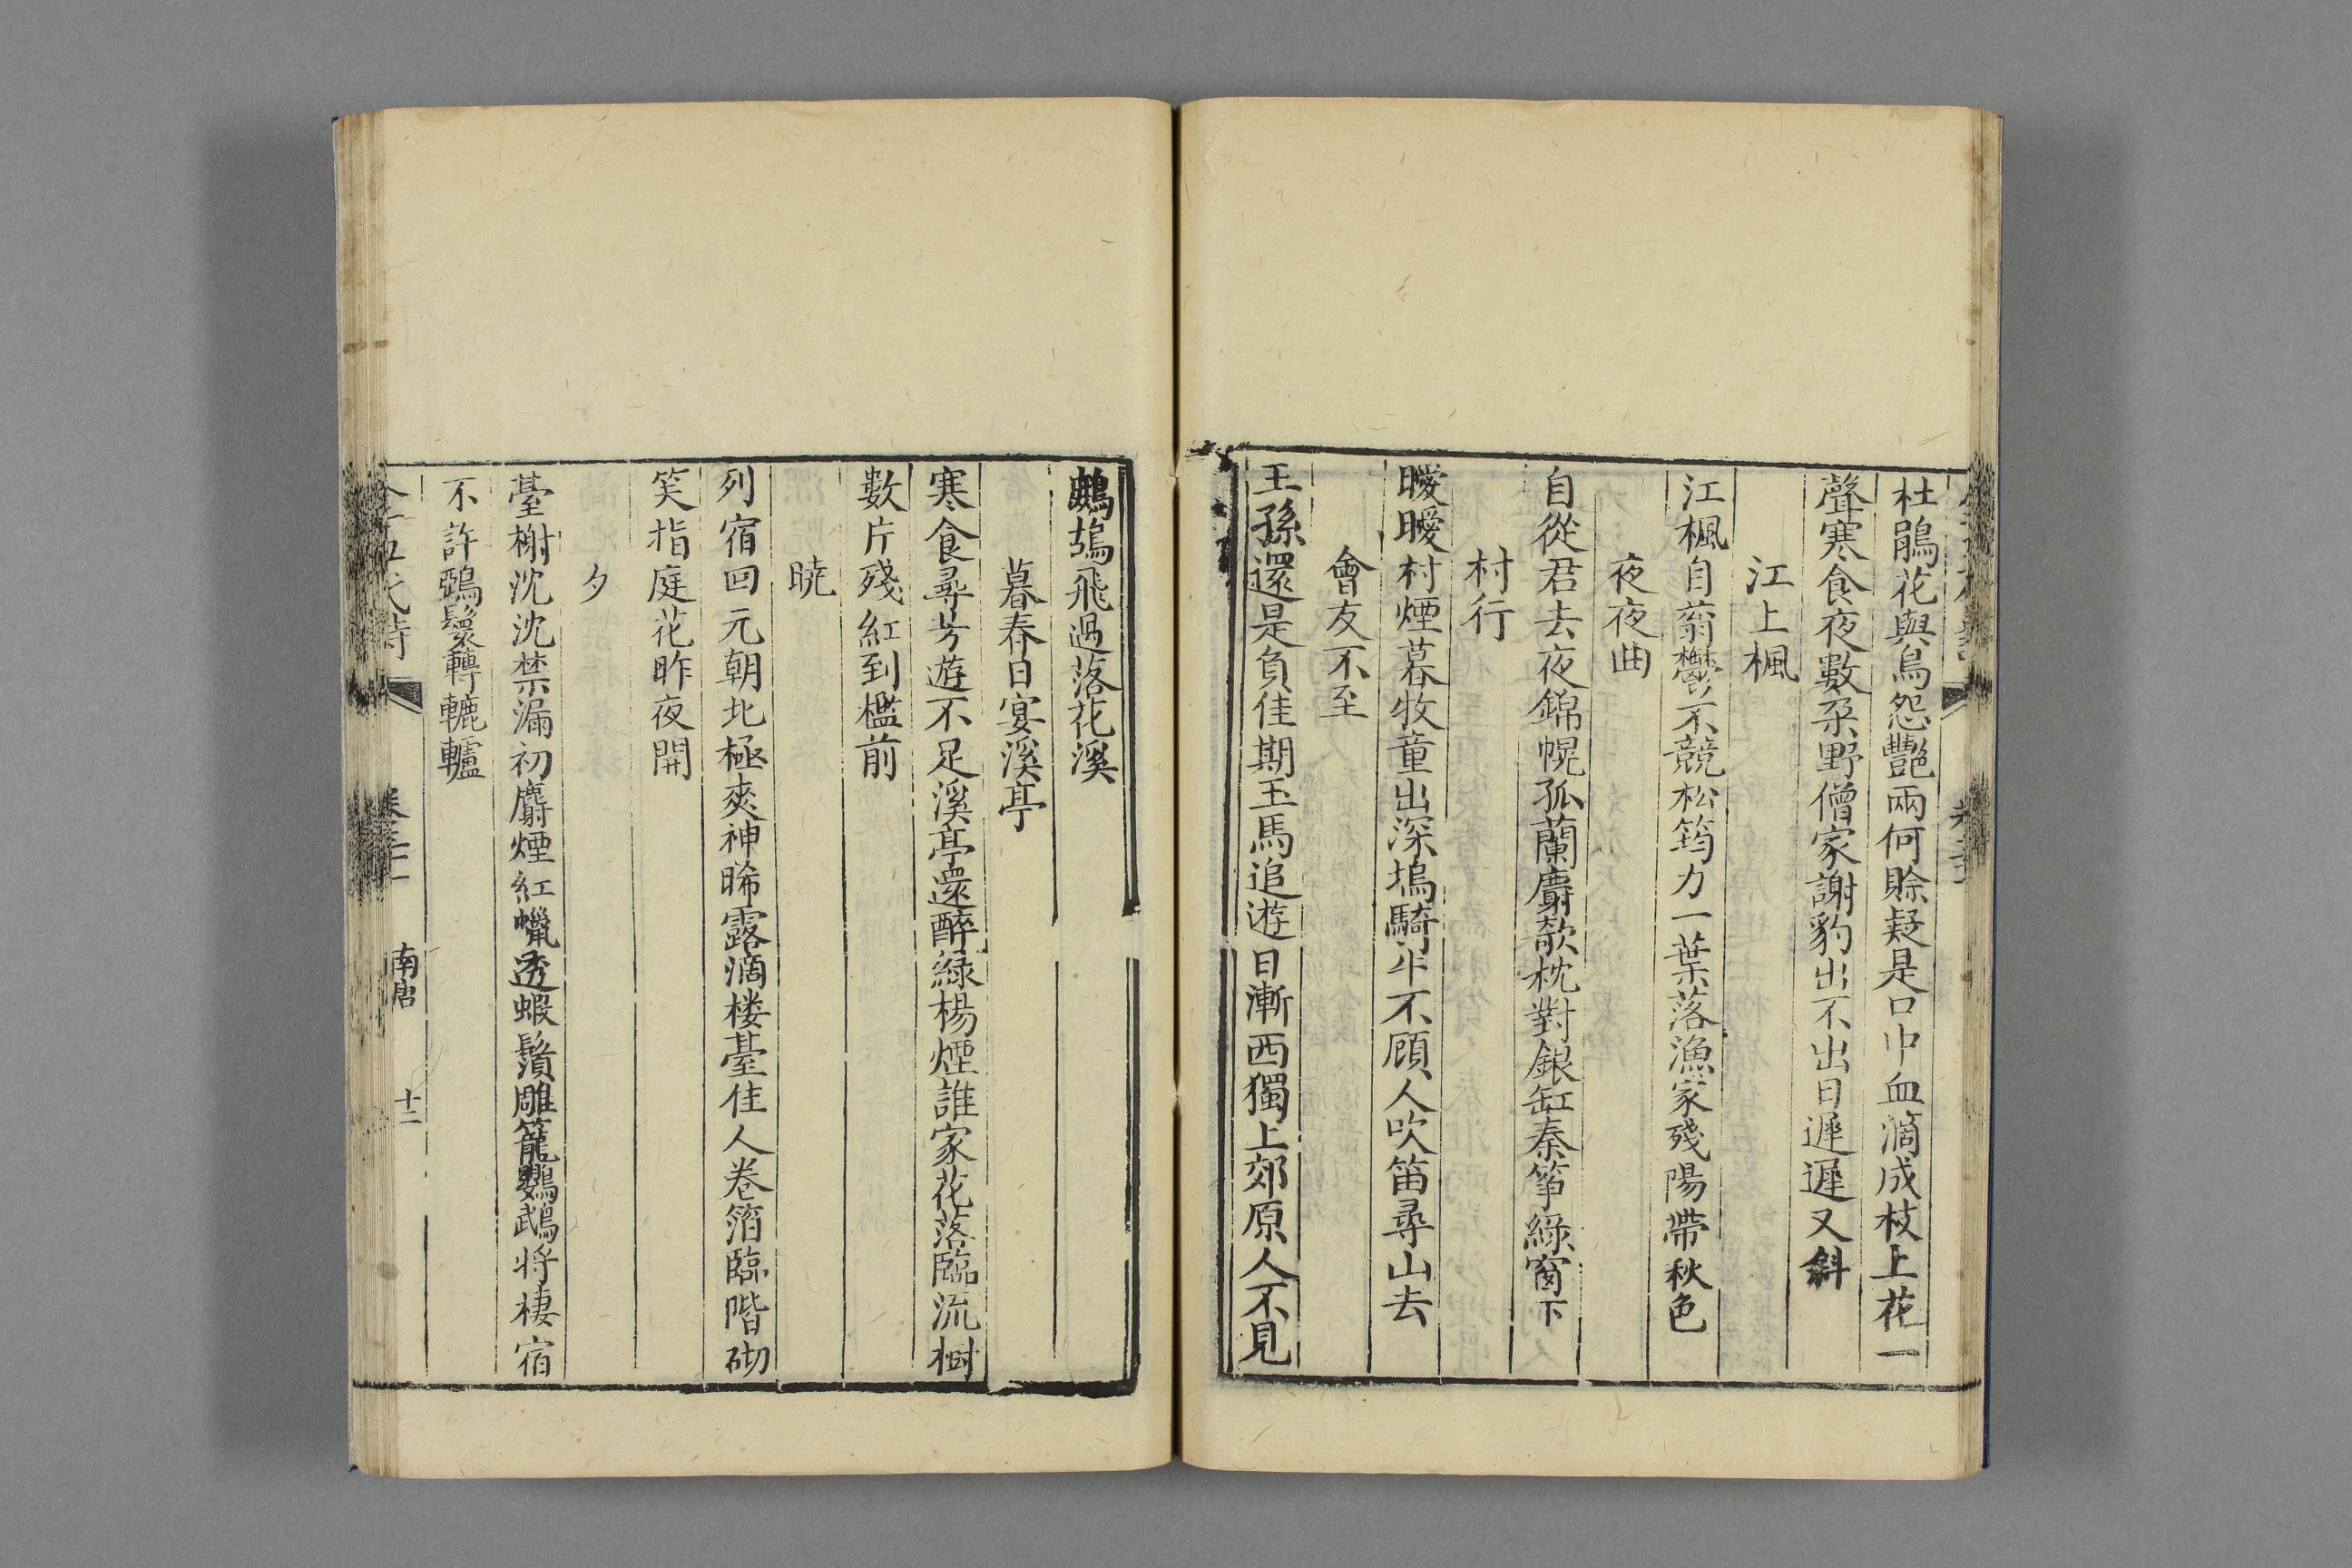 杜鵑花與鳥怨艷兩何賒疑是口中血滴成枝上花一
聲寒食夜數朶野僧家謝豹出不出日遲遲又斜
江上楓
江楓自蓊鬱不競松筠力一葉落漁家殘陽帶秋色
夜夜曲
自從君去夜錦幌孤蘭麝欹枕對銀缸秦箏綠窗下
村行
曖曖村煙暮牧童出深塢騎牛不顧人吹笛尋山去
會友不至
王孫還是負佳期玉馬追遊日漸西獨上郊原人不見
鷓鴣飛過落花溪
暮春日宴溪亭
寒食尋芳遊不足溪亭還醉綠楊煙誰家花落臨流樹
數片殘紅到檻前
曉
列宿回元朝北極爽神晞露滴楼臺佳人卷箔臨階砌
笑指庭花昨夜開
夕
臺榭沈沈禁漏初麝煙紅蠟透蝦鬚雕籠鸚鵡將棲宿
不許鵶鬟轉轆轤
南唐
十二